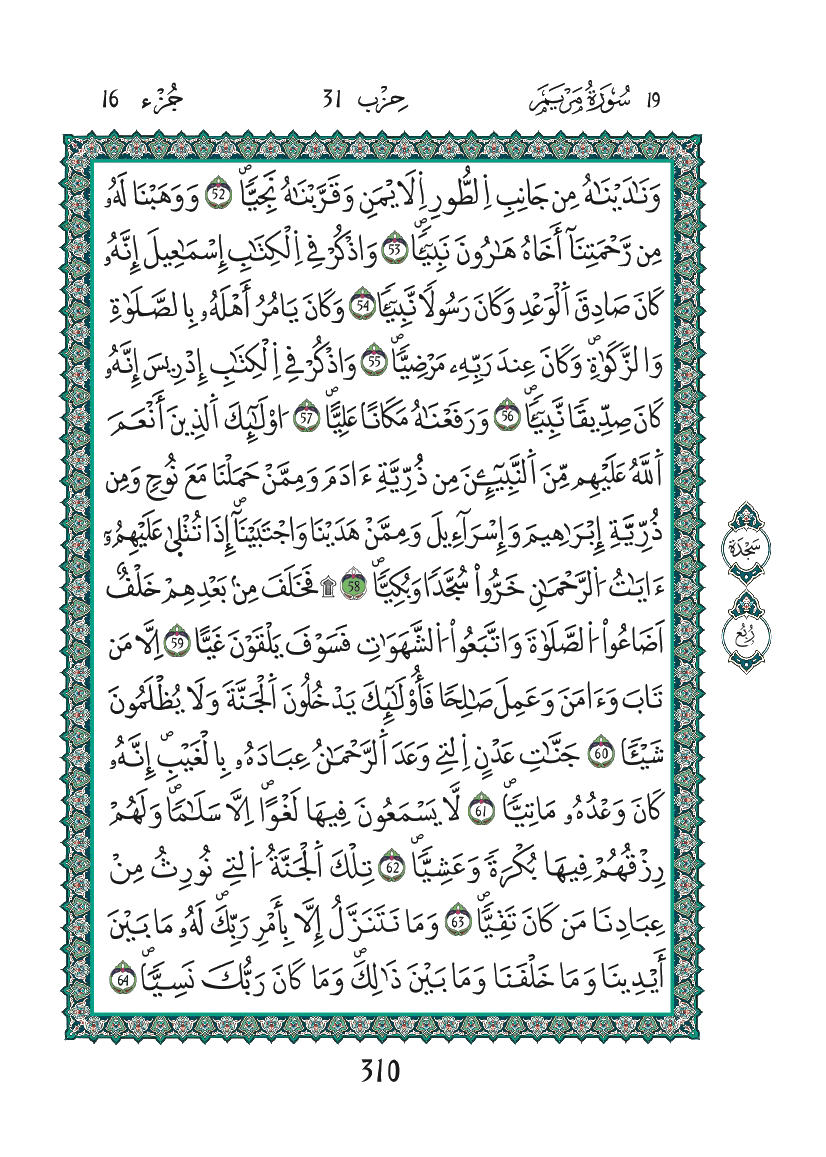 19 سُورَةُ مَرْيَمَ حِزْب 31 جُزْء 16
وَنَٰدَيْنَٰهُ مِن جَانِبِ اِ۬لطُّورِ اِ۬لَايْمَنِ وَقَرَّبْنَٰهُ نَجِيّٗاۖ 52 وَوَهَبْنَا لَهُۥ
مِن رَّحْمَتِنَآ أَخَاهُ هَٰرُونَ نَبِيٓـٔٗاۖ 53 وَاذْكُرْ فِے اِ۬لْكِتَٰبِ إِسْمَٰعِيلَ إِنَّهُۥ
كَانَ صَادِقَ اَ۬لْوَعْدِ وَكَانَ رَسُولٗا نَّبِيٓـٔٗاۖ 54 وَكَانَ يَامُرُ أَهْلَهُۥ بِالصَّلَوٰةِ
وَالزَّكَوٰةِۖ وَكَانَ عِندَ رَبِّهِۦ مَرْضِيّٗاۖ 55 وَاذْكُرْ فِے اِ۬لْكِتَٰبِ إِدْرِيسَ إِنَّهُۥ
كَانَ صِدِّيقٗا نَّبِيٓـٔٗاۖ 56 وَرَفَعْنَٰهُ مَكَاناً عَلِيّٗاۖ 57 ا۟وْلَٰٓئِكَ اَ۬لذِينَ أَنْعَمَ
اَ۬للَّهُ عَلَيْهِم مِّنَ اَ۬لنَّبِيٓـِٕۧنَ مِن ذُرِّيَّةِ ءَادَمَ وَمِمَّنْ حَمَلْنَا مَعَ نُوحٖ وَمِن
ذُرِّيَّةِ إِبْرَٰهِيمَ وَإِسْرَآءِيلَ وَمِمَّنْ هَدَيْنَا وَاجْتَبَيْنَآۖ إِذَا تُتْلَىٰ عَلَيْهِمُۥٓ
ءَايَٰتُ اُ۬لرَّحْمَٰنِ خَرُّواْ سُجَّداٗ وَبُكِيّٗاۖ 58 ۩ فَخَلَفَ مِنۢ بَعْدِهِمْ خَلْفٌ
اَضَاعُواْ اُ۬لصَّلَوٰةَ وَاتَّبَعُواْ اُ۬لشَّهَوَٰتِ فَسَوْفَ يَلْقَوْنَ غَيّٗا 59 اِلَّا مَن
تَابَ وَءَامَنَ وَعَمِلَ صَٰلِحاٗ فَأُوْلَٰٓئِكَ يَدْخُلُونَ اَ۬لْجَنَّةَ وَلَا يُظْلَمُونَ
شَيْـٔٗا 60 جَنَّٰتِ عَدْنٍ اِ۬لتِے وَعَدَ اَ۬لرَّحْمَٰنُ عِبَادَهُۥ بِالْغَيْبِۖ إِنَّهُۥ
كَانَ وَعْدُهُۥ مَاتِيّٗاۖ 61 لَّا يَسْمَعُونَ فِيهَا لَغْواً اِلَّا سَلَٰماٗۖ وَلَهُمْ
رِزْقُهُمْ فِيهَا بُكْرَةٗ وَعَشِيّٗاۖ 62 تِلْكَ اَ۬لْجَنَّةُ اُ۬لتِے نُورِثُ مِنْ
عِبَادِنَا مَن كَانَ تَقِيّٗاۖ 63 وَمَا نَتَنَزَّلُ إِلَّا بِأَمْرِ رَبِّكَۖ لَهُۥ مَا بَيْنَ
أَيْدِينَا وَمَا خَلْفَنَا وَمَا بَيْنَ ذَٰلِكَۖ وَمَا كَانَ رَبُّكَ نَسِيّٗاۖ 64
سَجْدَة
رُبُع
310